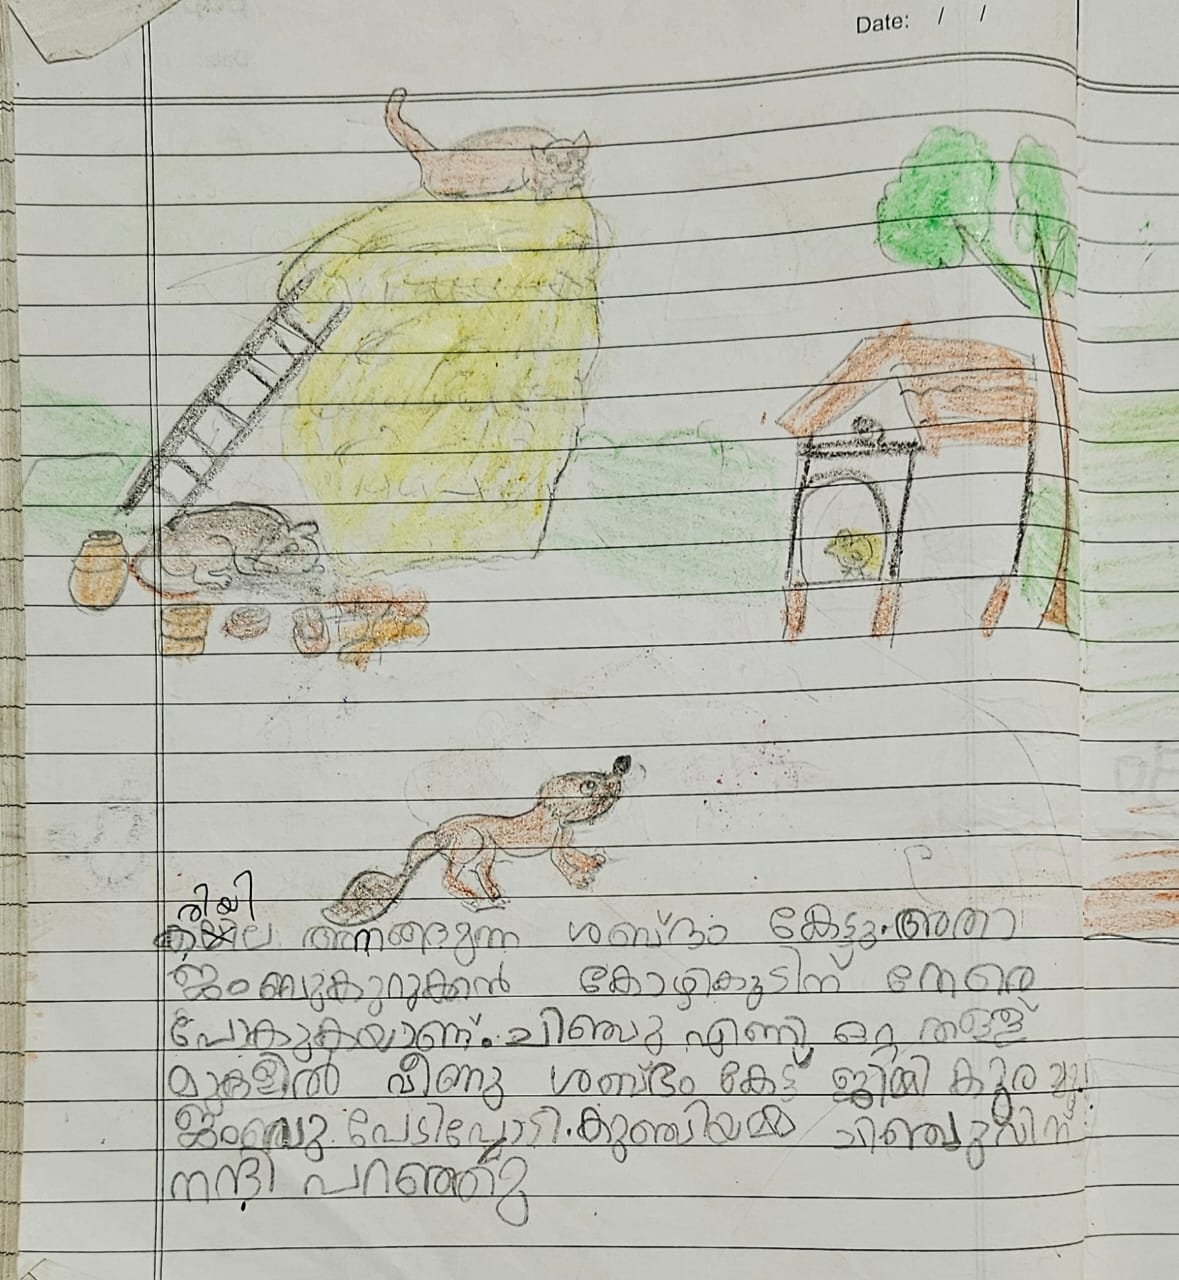 Date: / /
രിയി
കരിയില അനങ്ങുന്ന ശബ്ദം കേട്ടു. അതാ
ജംബുകുറുക്കൻ കോഴികൂടിന് നേരെ
പോകുകയാണ്. ചിഞ്ചു ഏണി ഒറ്റ തള്ള്
മുകളിൽ വീണു ശബ്ദം കേട്ട് ജിമ്മി കുരച്ചു
ജംബു പേടിച്ചോടി. കുഞ്ഞിയമ്മ ചിഞ്ചുവിന്
നന്ദി പറഞ്ഞു